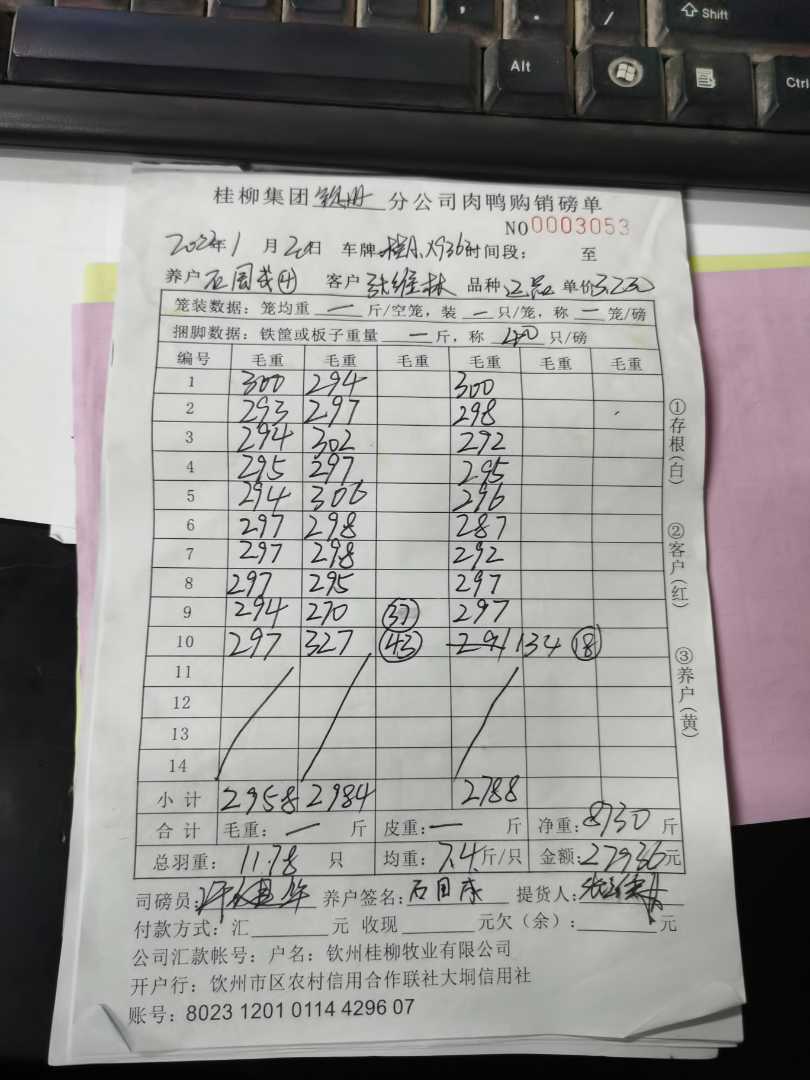 Alt
Shift
Ctrl
桂柳集团 钦州 分公司肉鸭购销磅单
NO0003053
年1月20日 车牌 时间段： 至
养户 石国 客户 张维林 品种 正品 单价3.2
笼装数据：笼均重 一 斤/空笼，装 一 只/笼，称 一 笼/磅
捆脚数据：铁筐或板子重量 一 斤，称 40 只/磅
编号 毛重 毛重 毛重 毛重 毛重 毛重
1 300 294 300
2 293 297 298
3 294 302 292
4 295 297 295
5 294 306 296
6 297 298 287
7 297 298 292
8 297 295 297
9 294 270 37 297
10 297 327 43 134 18
11
12
13
14
小计 2958 2984 2788
合计 毛重：一 斤 皮重：一 斤 净重：8730 斤
总羽重：1178 只 均重：7.4斤/只 金额：27936元
司磅员： 养户签名：石国 提货人：张
付款方式：汇 元 收现 元欠（余）： 元
公司汇款帐号：户名：钦州桂柳牧业有限公司
开户行：钦州市区农村信用合作联社大垌信用社
账号：8023 1201 0114 4296 07
①存根(白)
②客户(红)
③养户(黄)